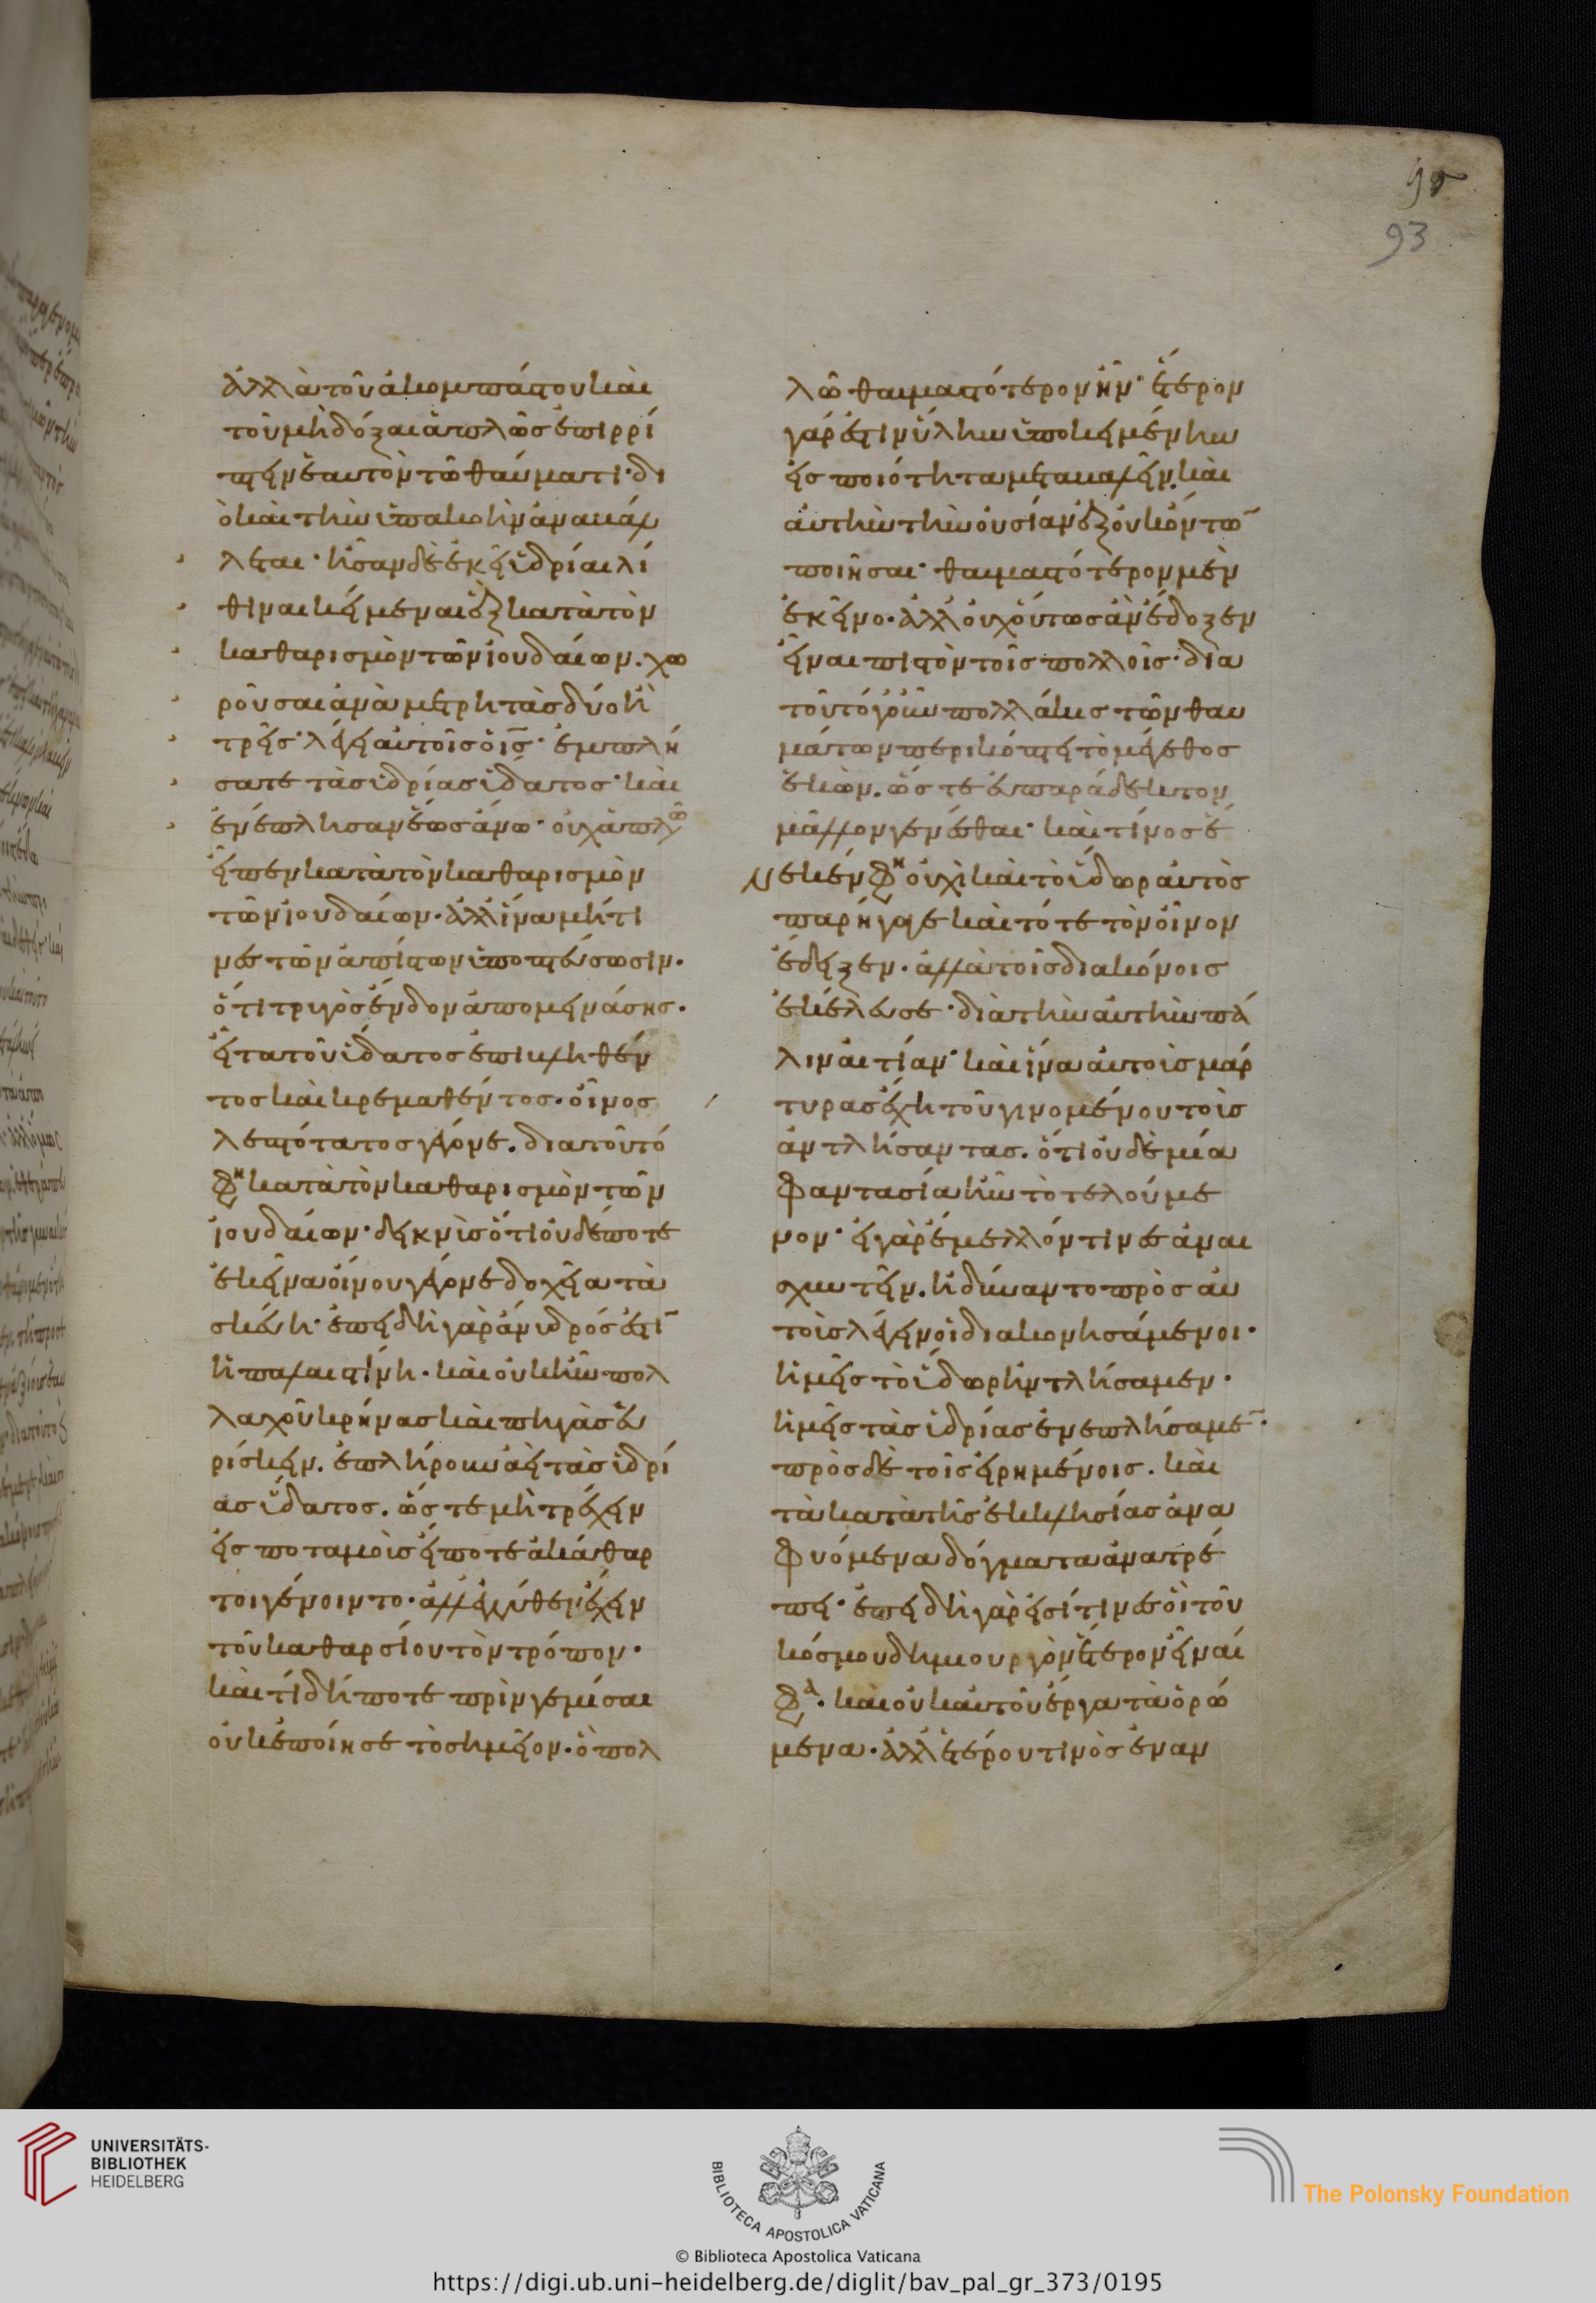 ἀλλὰ τοῦ ἀκομπάστου καὶ
τοῦ μὴ δόξαι ἁπλῶς ἐπιρρί
πτειν ἑαυτὸν τῶ θαύματι· δι
ὸ καὶ τὴν ὑπακοὴν ἀναβάλ
λεται· ἦσαν δὲ ἐκεῖ ὑδρίαι λί
θιναι κείμεναι ἓξ κατὰ τὸν
καθαρισμὸν τῶν ἰουδαίων. χω
ροῦσαι ἀνὰ μετρητὰς δύο ἢ
τρεῖς· λέγει αὐτοῖς ὁ ις· ἐμπλή
σατε τὰς ὑδρίας ὕδατος· καὶ
ἐνέπλησαν ἕως ἄνω· οὐχ ἁπλῶ
εἶπεν κατὰ τὸν καθαρισμὸν
τῶν ἰουδαίων. ἀλλ' ἵνα μή τι
νες τῶν ἀπίστων ὑποπτεύσωσιν.
ὅτι τρυγὸς ἔνδον ἀπομεινάσης.
εἶτα τοῦ ὕδατος ἐπιβληθέν
τος καὶ κρεμαθέντος. οἶνος
λεπτότατος γέγονε. διατοῦτό
φη κατὰ τὸν καθαρισμὸν τῶν
ἰουδαίων· δεικνὺς ὅτι οὐδέποτε
ἐκεῖνα οἴνου γέγονε δοχεῖα τὰ
σκεύη· ἐπειδὴ γὰρ ἄνυδρός ἐστι
ἡ παλαιστίνη. καὶ οὐκ ἦν πολ
λαχοῦ κρήνας καὶ πηγὰς εὑ
ρίσκειν. ἐπλήρουν ἀεὶ τὰς ὑδρί
ας ὕδατος. ὥστε μὴ τρέχειν
εἰς ποταμοὺς εἴποτε ἀκάθαρ
τοι γένοιντο. ἀλλ' ἐγγύθεν ἔχειν
τοῦ καθαρσίου τὸν τρόπον.
καὶ τί δήποτε πρὶν γεμίσαι
οὐκ ἐποίησε τὸ σημεῖον. ὃ πολ
93
λῶ θαυμαστότερον ἦν· ἕτερον
γάρ ἐστιν ὕλην ὑποκειμένην
εἰς ποιότητα μεταβαλεῖν. καὶ
αὐτὴν τὴν οὐσίαν ἐξ οὐκ ὄντω
ποιῆσαι· θαυμαστότερον μὲν
ἐκεῖνο. ἀλλ' οὐχ οὕτως ἂν ἔδοξεν
εἶναι πιστὸν τοῖς πολλοῖς· διὰ
τοῦτό γ' οὖν πολλάκις τῶν θαυ
μάτων περικόπτει τὸ μέγεθος
ἑκών. ὥστε εὐπαράδεκτον
μᾶλλον γενέσθαι· καὶ τίνος ἕ
νεκέν φη οὐχὶ καὶ τὸ ὕδωρ αὐτὸς
παρήγαγε καὶ τότε τὸν οἶνον
ἔδειξεν. ἀλλὰ τοῖς διακόνοις
ἐκέλευσε· διὰ τὴν αὐτὴν πά
λιν αἰτίαν· καὶ ἵνα αὐτοὺς μάρ
τυρας ἔχη τοῦ γινομένου τοὺς
ἀντλήσαντας. ὅτι οὐδὲ μία
φαντασία ἦν τὸ τελούμε
νον· εἰ γὰρ ἔμελλόν τινες ἀναι
σχυντεῖν. ἠδύναντο πρὸς αὐ
τοὺς λέγειν οἱ διακονησάμενοι·
ἡμεῖς τὸ ὕδωρ ἠντλήσαμεν·
ἡμεῖς τὰς ὑδρίας ἐνεπλήσαμε·
πρὸς δὲ τοῖς εἰρημένοις. καὶ
τὰ κατὰ τῆς ἐκκλησίας ἀνα
φυόμενα δόγματα ἀνατρέ
πει· ἐπειδὴ γὰρ εἰσί τινες οἳ τοῦ
κόσμου δημιουργὸν ἕτερον εἶναί
φα. καὶ οὐκ αὐτοῦ ἔργα τὰ ὁρώ
μενα. ἀλλ' ἑτέρου τινὸς ἐναν
UNIVERSITÄTS-
BIBLIOTHEK
HEIDELBERG
BIBLIOTECA APOSTOLICA VATICANA
The Polonsky Foundation
© Biblioteca Apostolica Vaticana
https://digi.ub.uni-heidelberg.de/diglit/bav_pal_gr_373/0195